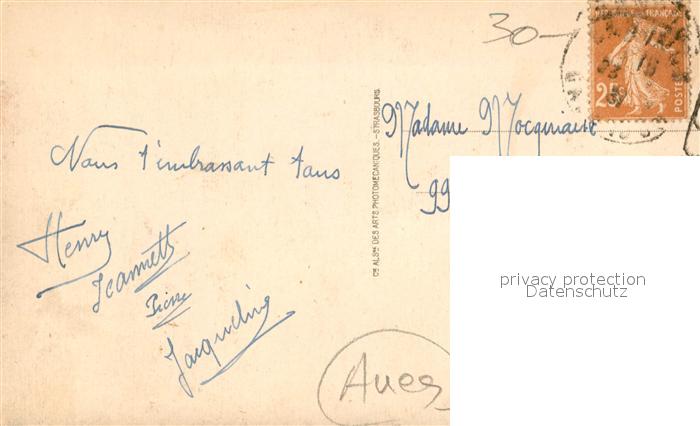 30-
RÉPUBLIQUE FRANÇAISE
25
POSTES
Madame Mocquiaux
99
Nous t'embrassant tous
Henry
Jeannette
Pierre
Jacqueline
Cie ALSne DES ARTS PHOTOMÉCANIQUES. - STRASBOURG
privacy protection
Datenschutz